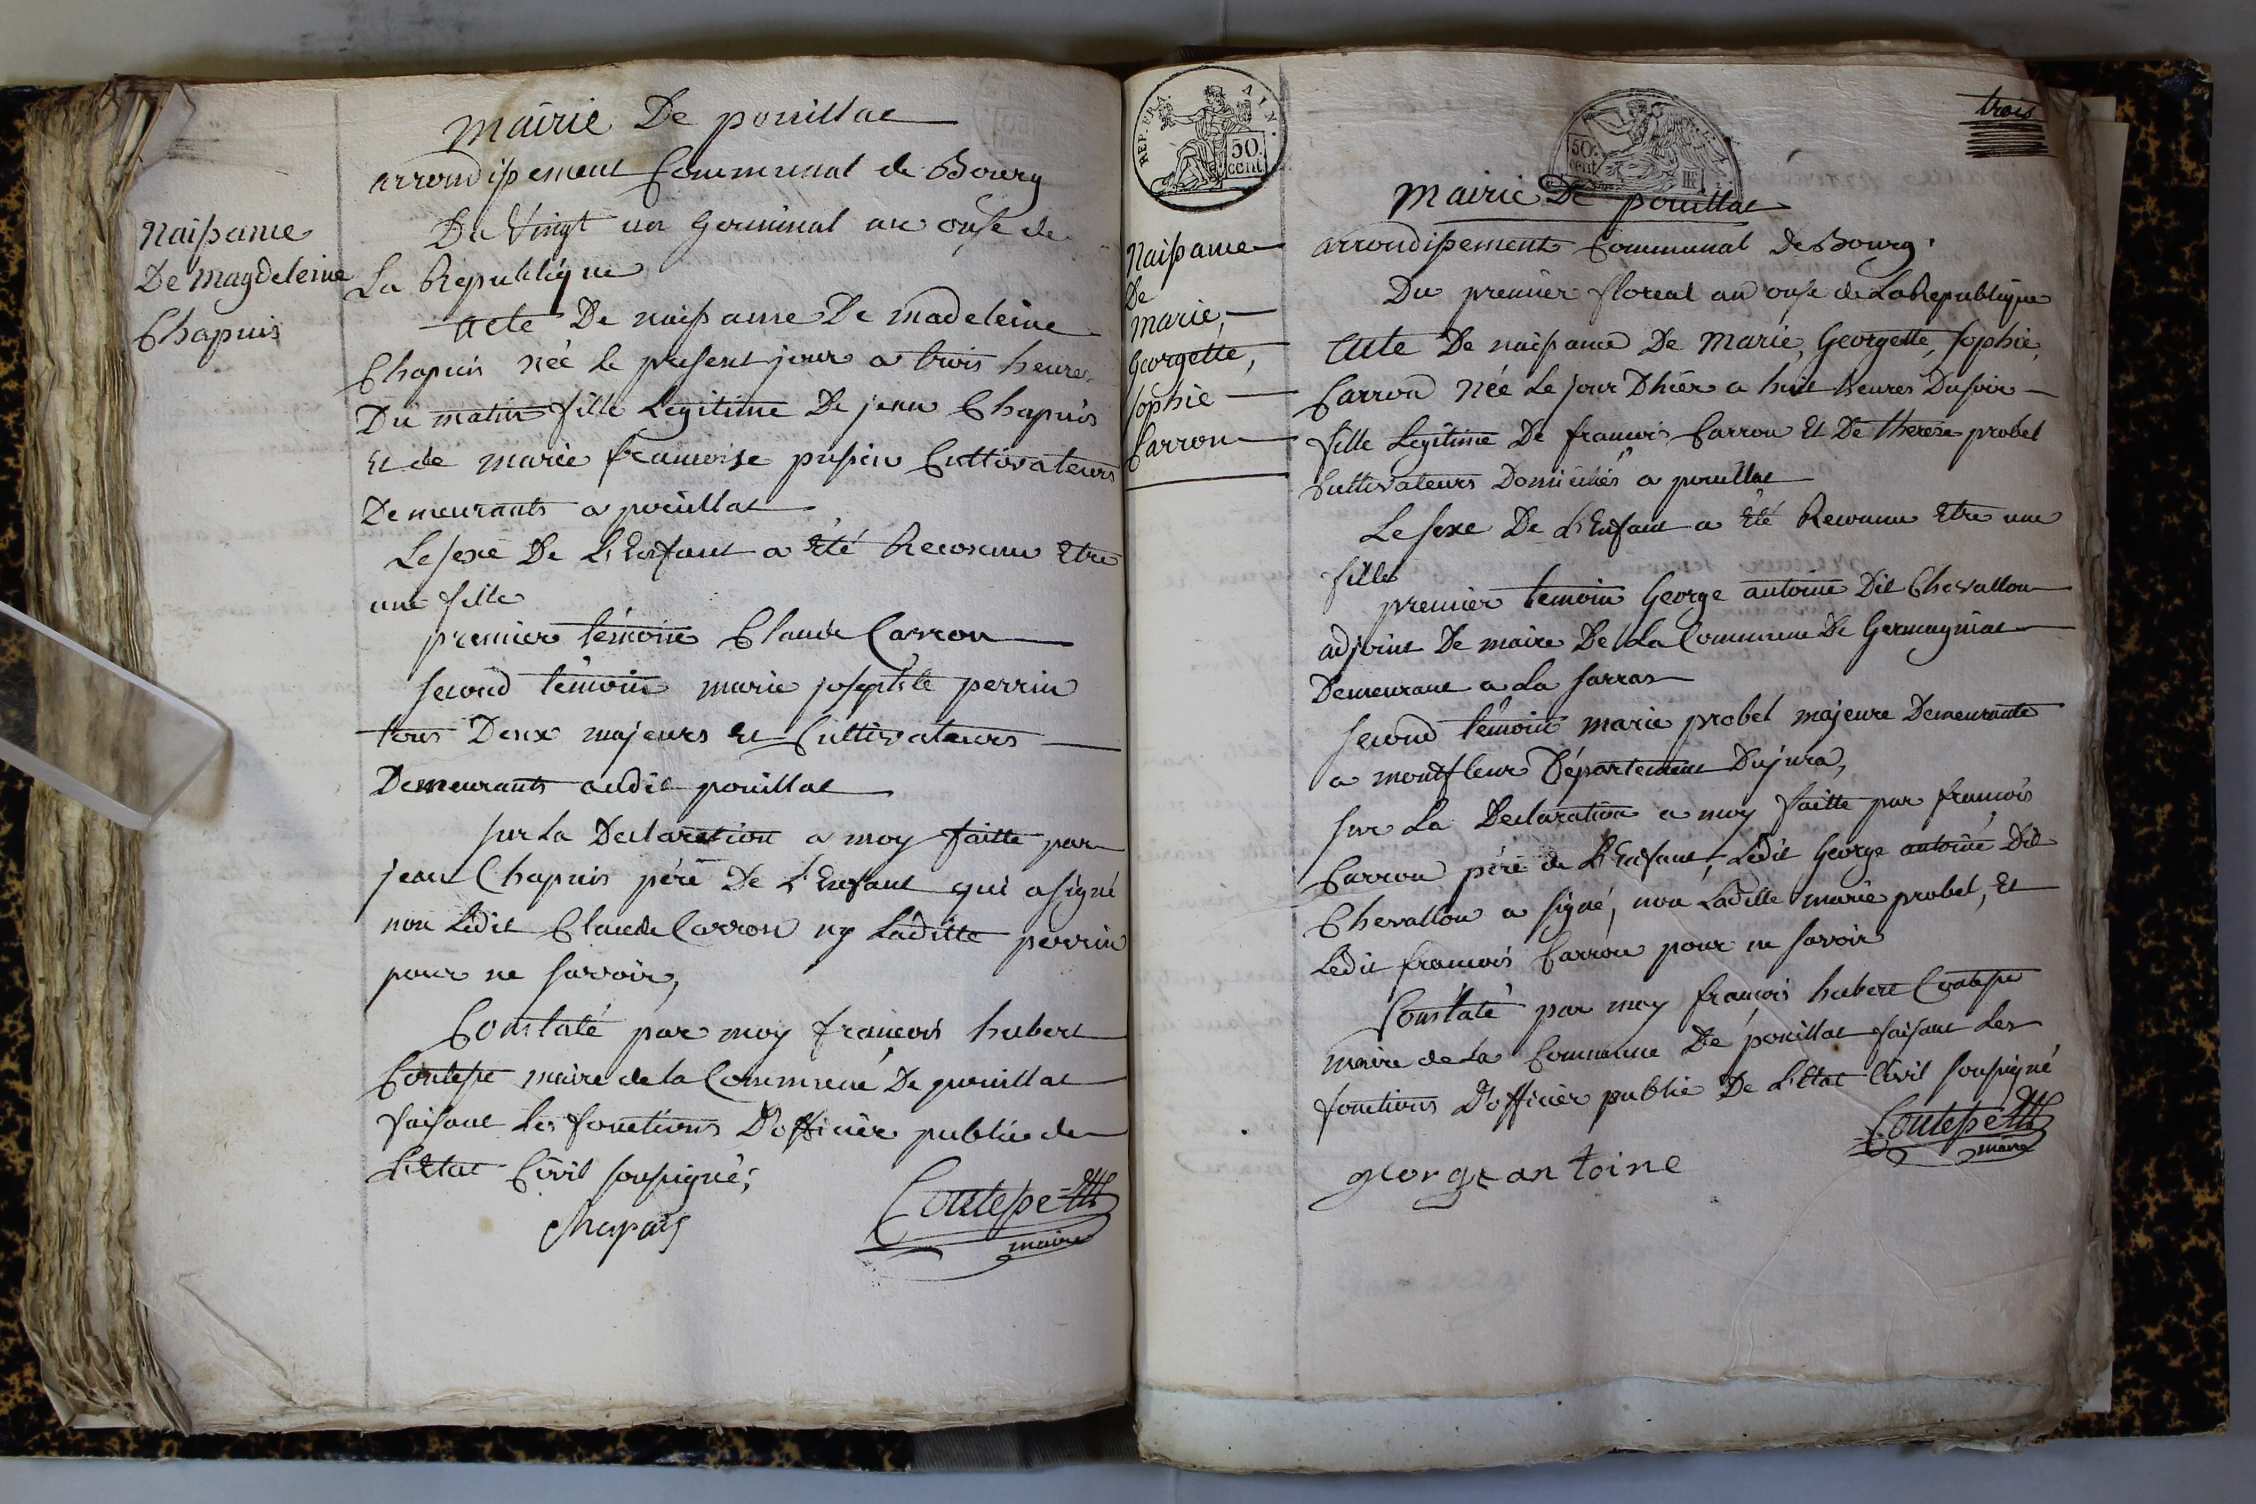 mairie De pouillat
arrondissement Communal de Bourg
Naissance
De Magdeleine
Chapuis
Du Vingt un germinal an onse de
La Republique
Acte De naissance De madeleine
Chapuis née le present jour a trois heures
Du matin fille Legitime De jean Chapuis
Et de marie francoise Cultivateurs
Demeurants a pouillat
Le sexe De L'Enfant a Eté Reconnu Etre
une fille
premier témoin Claude Carron
second témoin marie josephte perrin
tous Deux majeurs et Cultivateurs
Demeurants audit pouillat
sur La Declaration a moy faitte par
jean Chapuis père De L'Enfant qui a signé
non Ledit Claude Carron ny Laditte perrin
pour ne savoir,
Constaté par moy francois hubert
Coutesse maire de la Commune De pouillat
faisant les fonctions D'officier public de
L'Etat Civil soussigné;
Chapuis
maire
REP. FRA.
AIN.
50.
cent.
50.
cent.
trois
Mairie De pouillat
arrondissement Communal De Bourg.
Naissance
De
marie,
Georgette,
sophie
Carron
Du premier floreal an onse de La Republique
Acte De naissance De Marie, Georgette, sophie,
Carron née Le jour D'hier a huit heures Du soir
fille Legitime De francois Carron Et De therese probel
Cultivateurs Domiciliés a pouillat
Le sexe De L'Enfant a Eté Reconnu Etre une
fille
premier temoin George antoine Dit Chevallon
adjoint De maire De La Commune De Germagniat
Demeurant a La sarras
second témoin marie probel majeure Demeurante
a montfleur Département Du jura,
sur La Declaration a moy faitte par francois
Carron père de L'Enfant, Ledit George antoine Dit
Chevallon a signé, non Laditte marie probel, Et
Ledit francois Carron pour ne savoir
Constaté par moy françois hubert Coutesse
maire de La Commune De pouillat faisant Les
fonctions D'officier public De L'Etat Civil soussigné
maire
george antoine